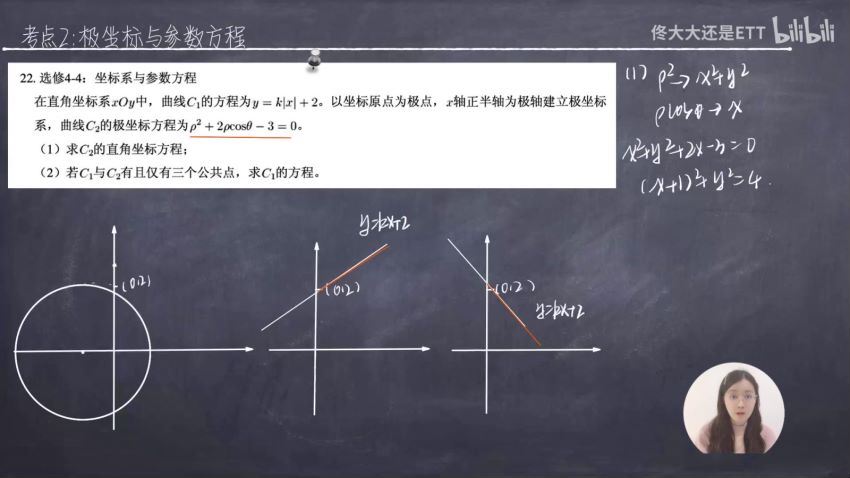 考点2:极坐标与参数方程
佟大大还是ETT bilibili
22. 选修4-4：坐标系与参数方程
在直角坐标系xOy中，曲线C₁的方程为y = k|x| + 2。以坐标原点为极点，x轴正半轴为极轴建立极坐标
系，曲线C₂的极坐标方程为ρ² + 2ρcosθ − 3 = 0。
（1）求C₂的直角坐标方程；
（2）若C₁与C₂有且仅有三个公共点，求C₁的方程。
(1) ρ²→x²+y²
ρcosθ→x
x²+y²+2x-3=0
(x+1)²+y²=4.
y=kx+2
(0,2)
(0,2)
(0,2)
y=kx+2